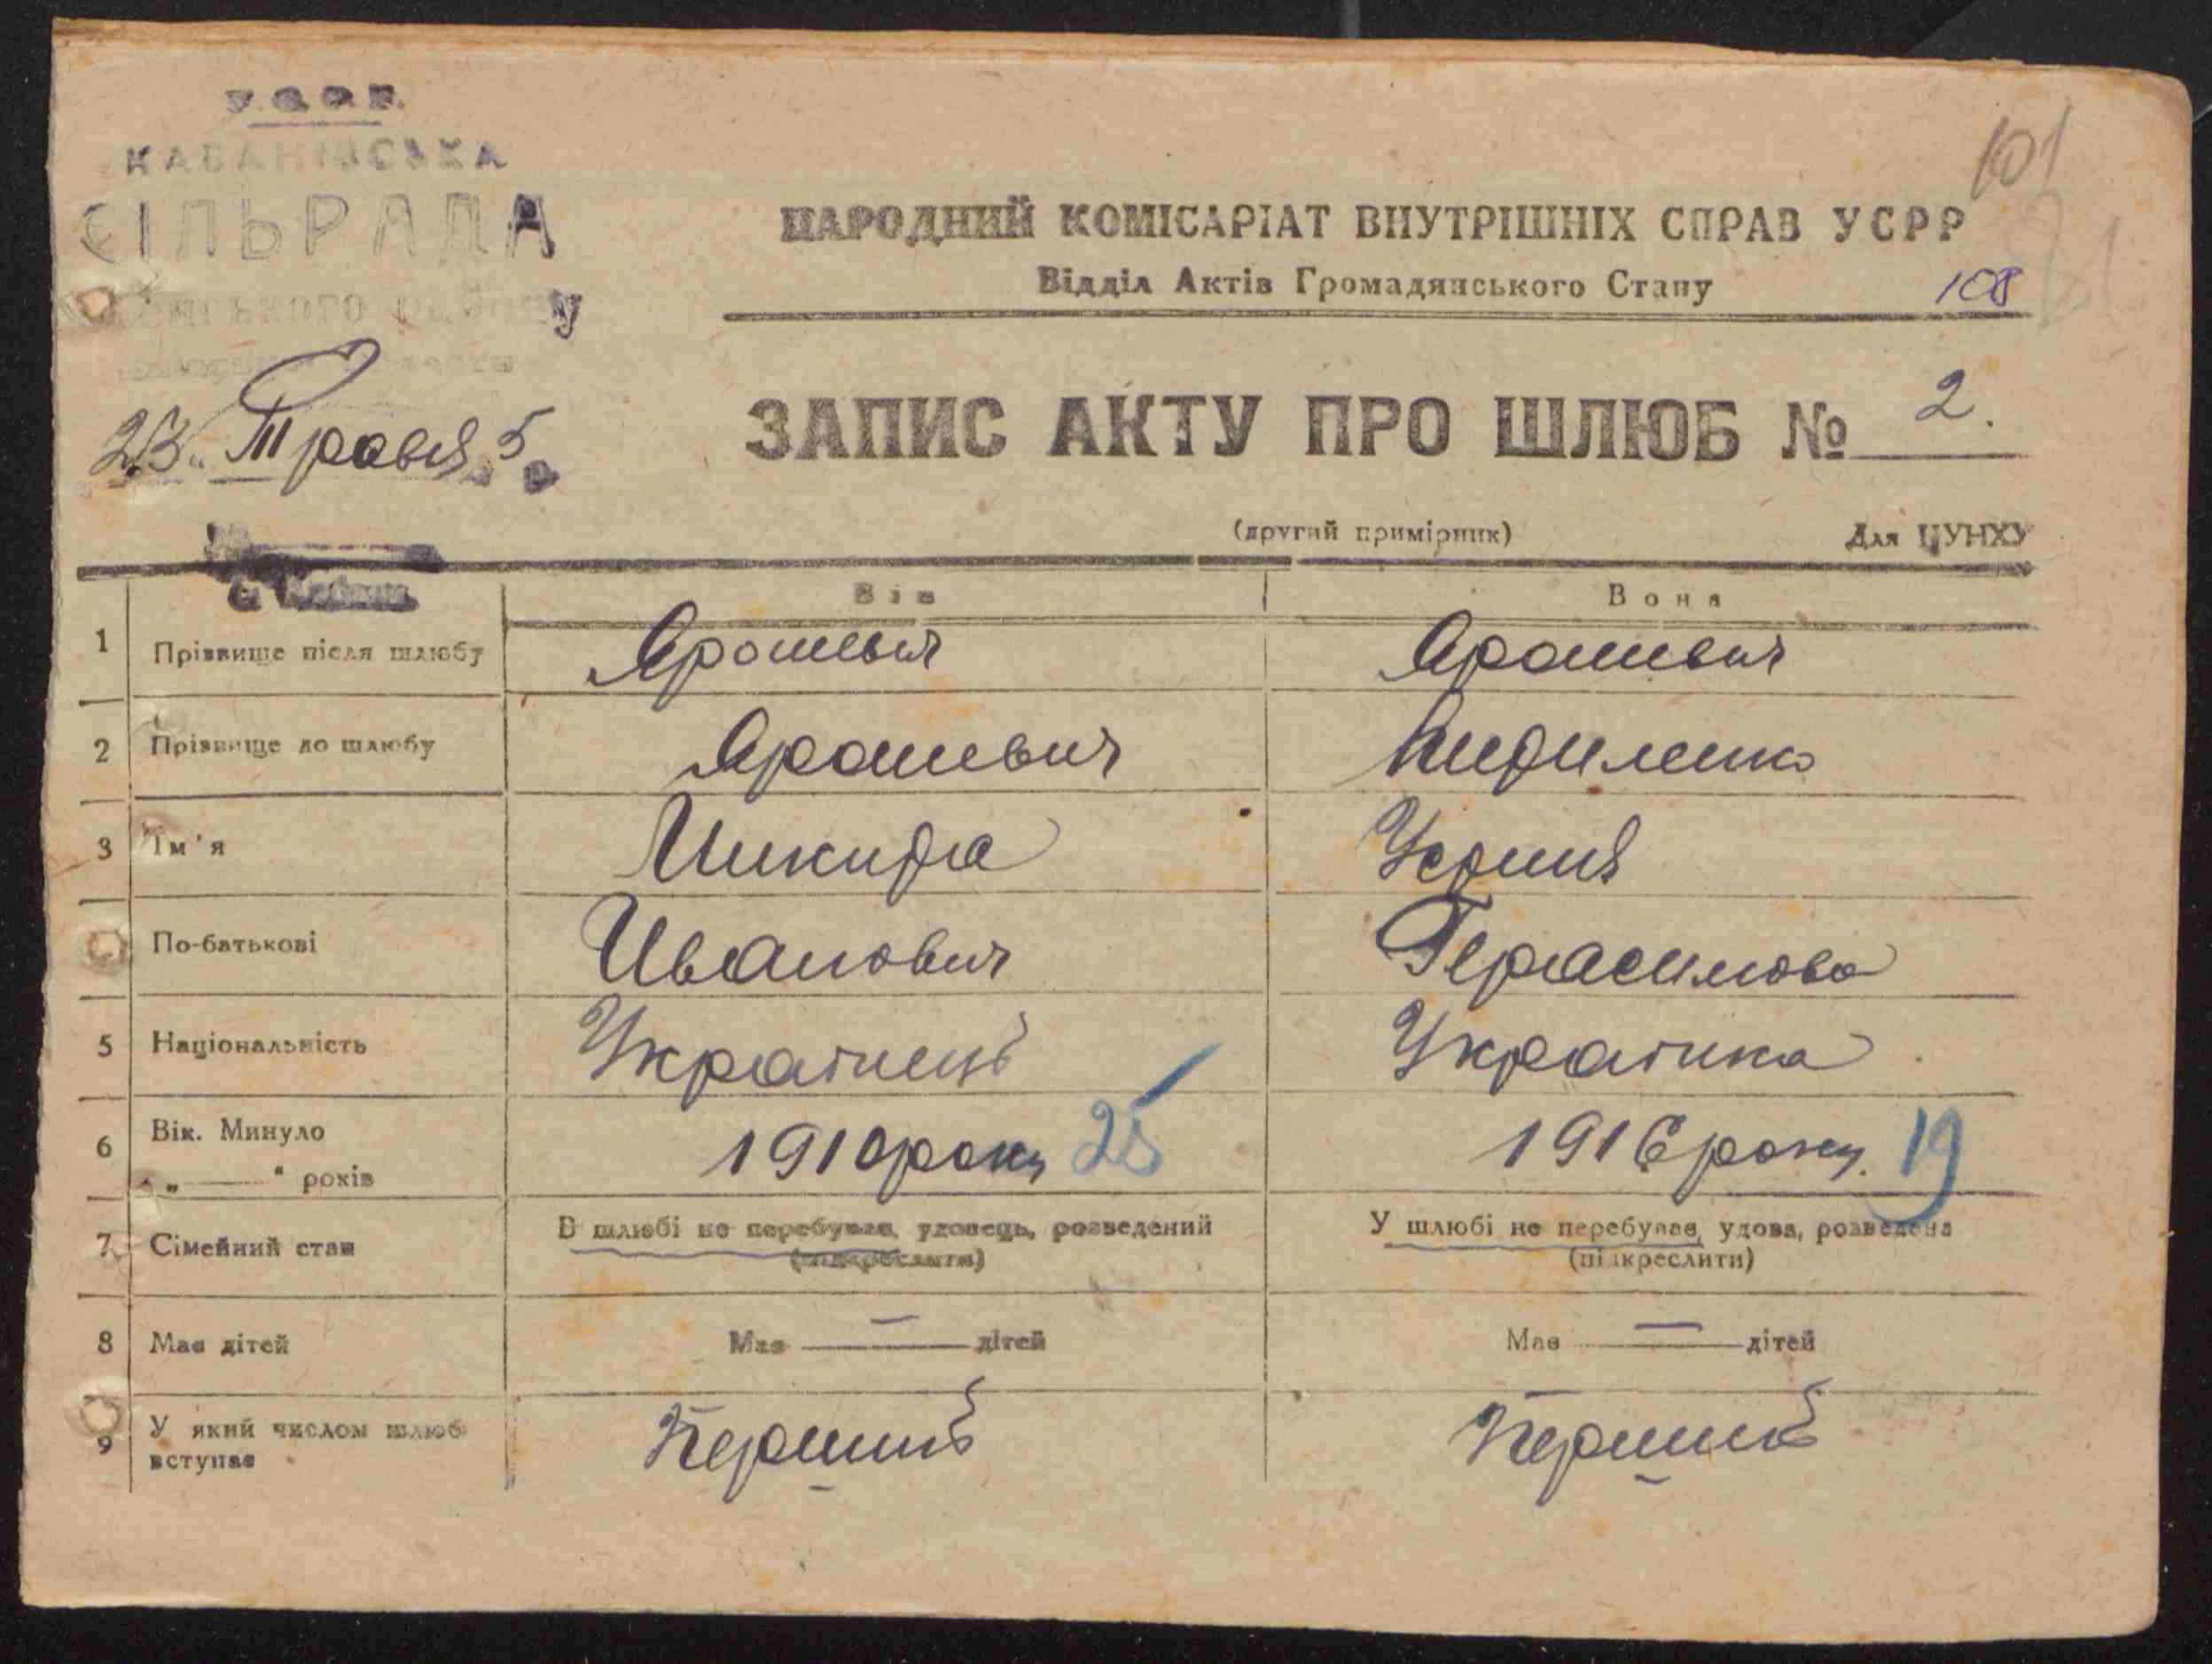 У.С.Р.Р.
КАБАНІВСЬКА
СІЛЬРАДА
101
НАРОДНИЙ КОМІСАРІАТ ВНУТРІШНІХ СПРАВ УСРР
Відділ Актів Громадянського Стану 108
23 Травня 5
ЗАПИС АКТУ ПРО ШЛЮБ № 2.
(другий примірник) Для ЦУНХУ
Він Вона
1 Прізвище після шлюбу Ярошевич Ярошевич
2 Прізвище до шлюбу Ярошевич
3 Ім'я Микита
По-батькові Иванович Герасимова
5 Національність Украінець Украінка
6 Вік. Минуло 1910 року 25 1916 року. 19
„ “ років
7 Сімейний стан В шлюбі не перебував, удовець, розведений У шлюбі не перебуває, удова, розведена
(підкреслити) (підкреслити)
8 Має дітей Має — дітей Має — дітей
9 У який числом шлюб вступає Перший Перший